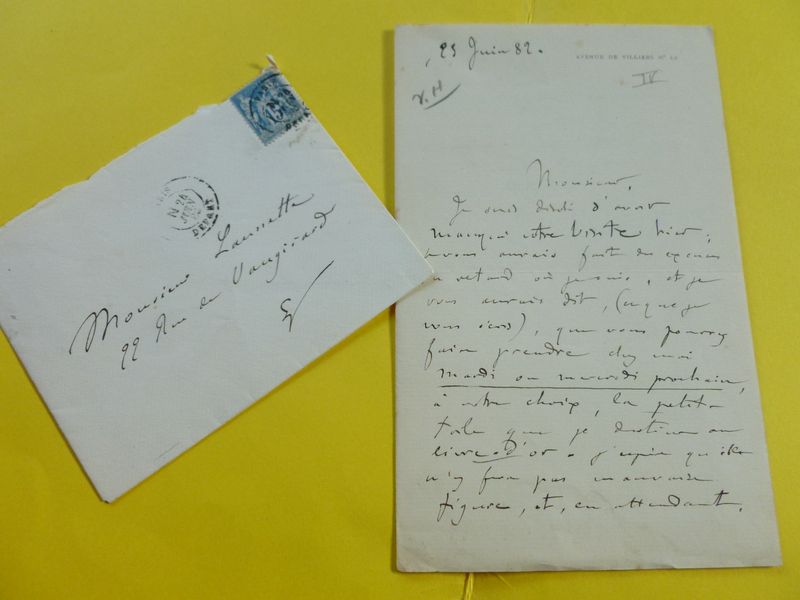 25 Juin 82.
AVENUE DE VILLIERS No
V.H
IV
Monsieur,
Je suis désolé d'avoir
manqué votre visite hier;
vous aurais fait des excuses
retard où je suis, et je
vous aurais dit, (ce que je
vous écris), que vous pourrez
faire prendre chez moi
mardi ou mercredi prochain,
à votre choix, la petite
toile que je destine au
livre d'or. J'espère qu'elle
n'y fera pas mauvaise
figure, et, en attendant,
DEPART
JUIN
DEPART
Monsieur Launette
22 Rue de Vaugirard